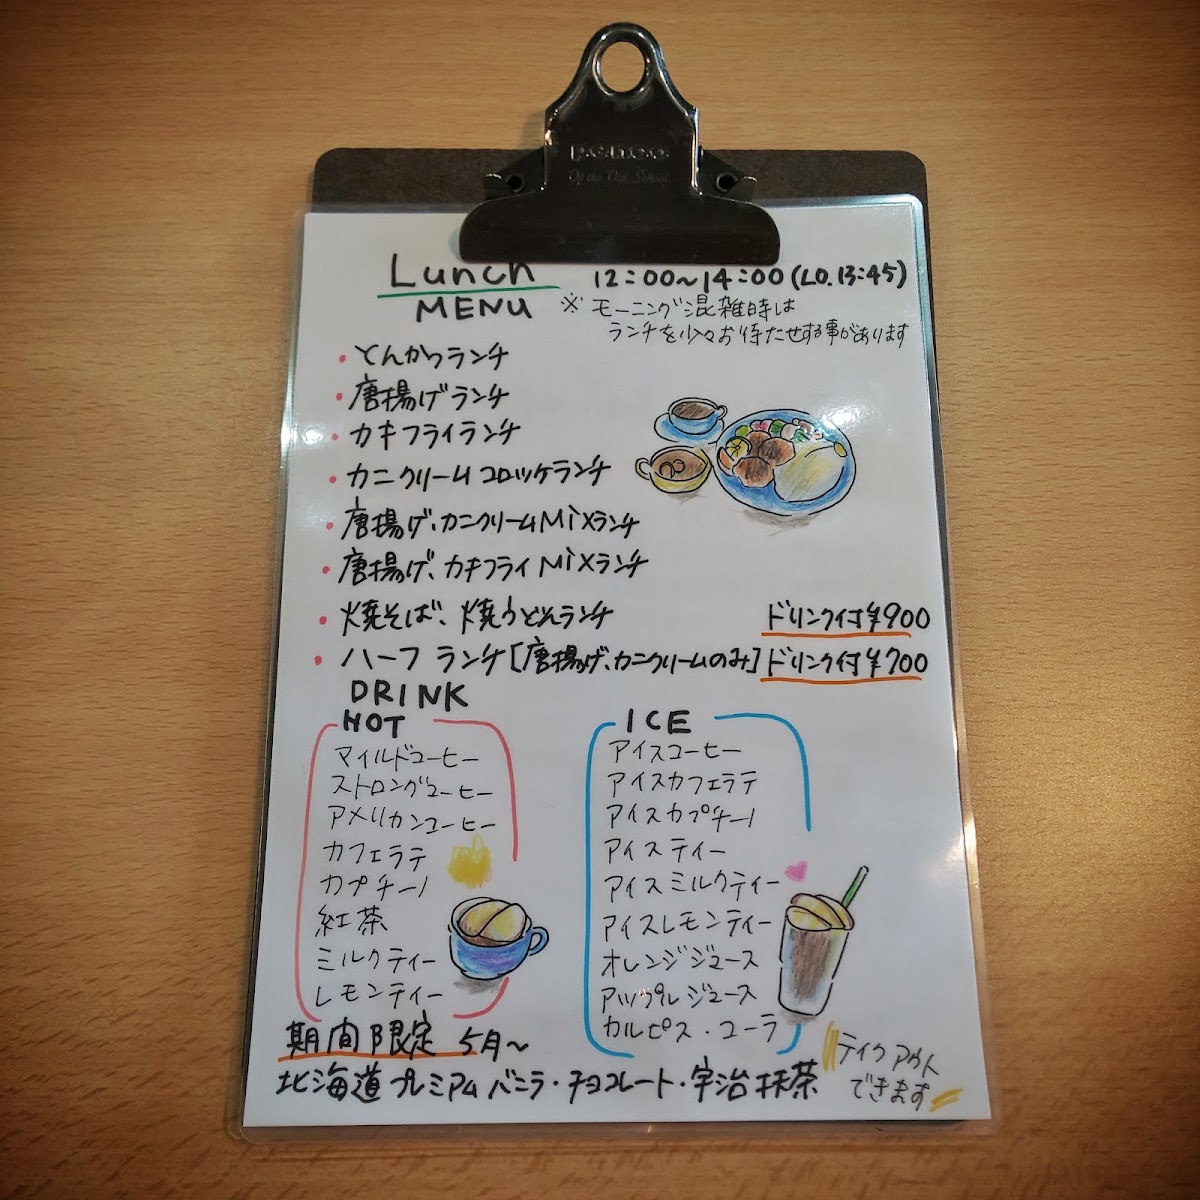 penco
Of the Old School
Lunch
MENU
12:00～14:00(LO.13:45)
※モーニング混雑時は
ランチを少々お待たせする事があります
・とんかつランチ
・唐揚げランチ
・カキフライランチ
・カニクリームコロッケランチ
・唐揚げ、カニクリームMixランチ
・唐揚げ、カキフライMixランチ
・焼そば、焼うどんランチ ドリンク付¥900
・ハーフランチ[唐揚げ、カニクリームのみ]ドリンク付¥700
DRINK
HOT
マイルドコーヒー
ストロングコーヒー
アメリカンコーヒー
カフェラテ
カプチーノ
紅茶
ミルクティー
レモンティー
ICE
アイスコーヒー
アイスカフェラテ
アイスカプチーノ
アイスティー
アイスミルクティー
アイスレモンティー
オレンジジュース
アップルジュース
カルピス・コーラ
期間限定 5月～
北海道プレミアムバニラ・チョコレート・宇治抹茶
テイクアウト
できます